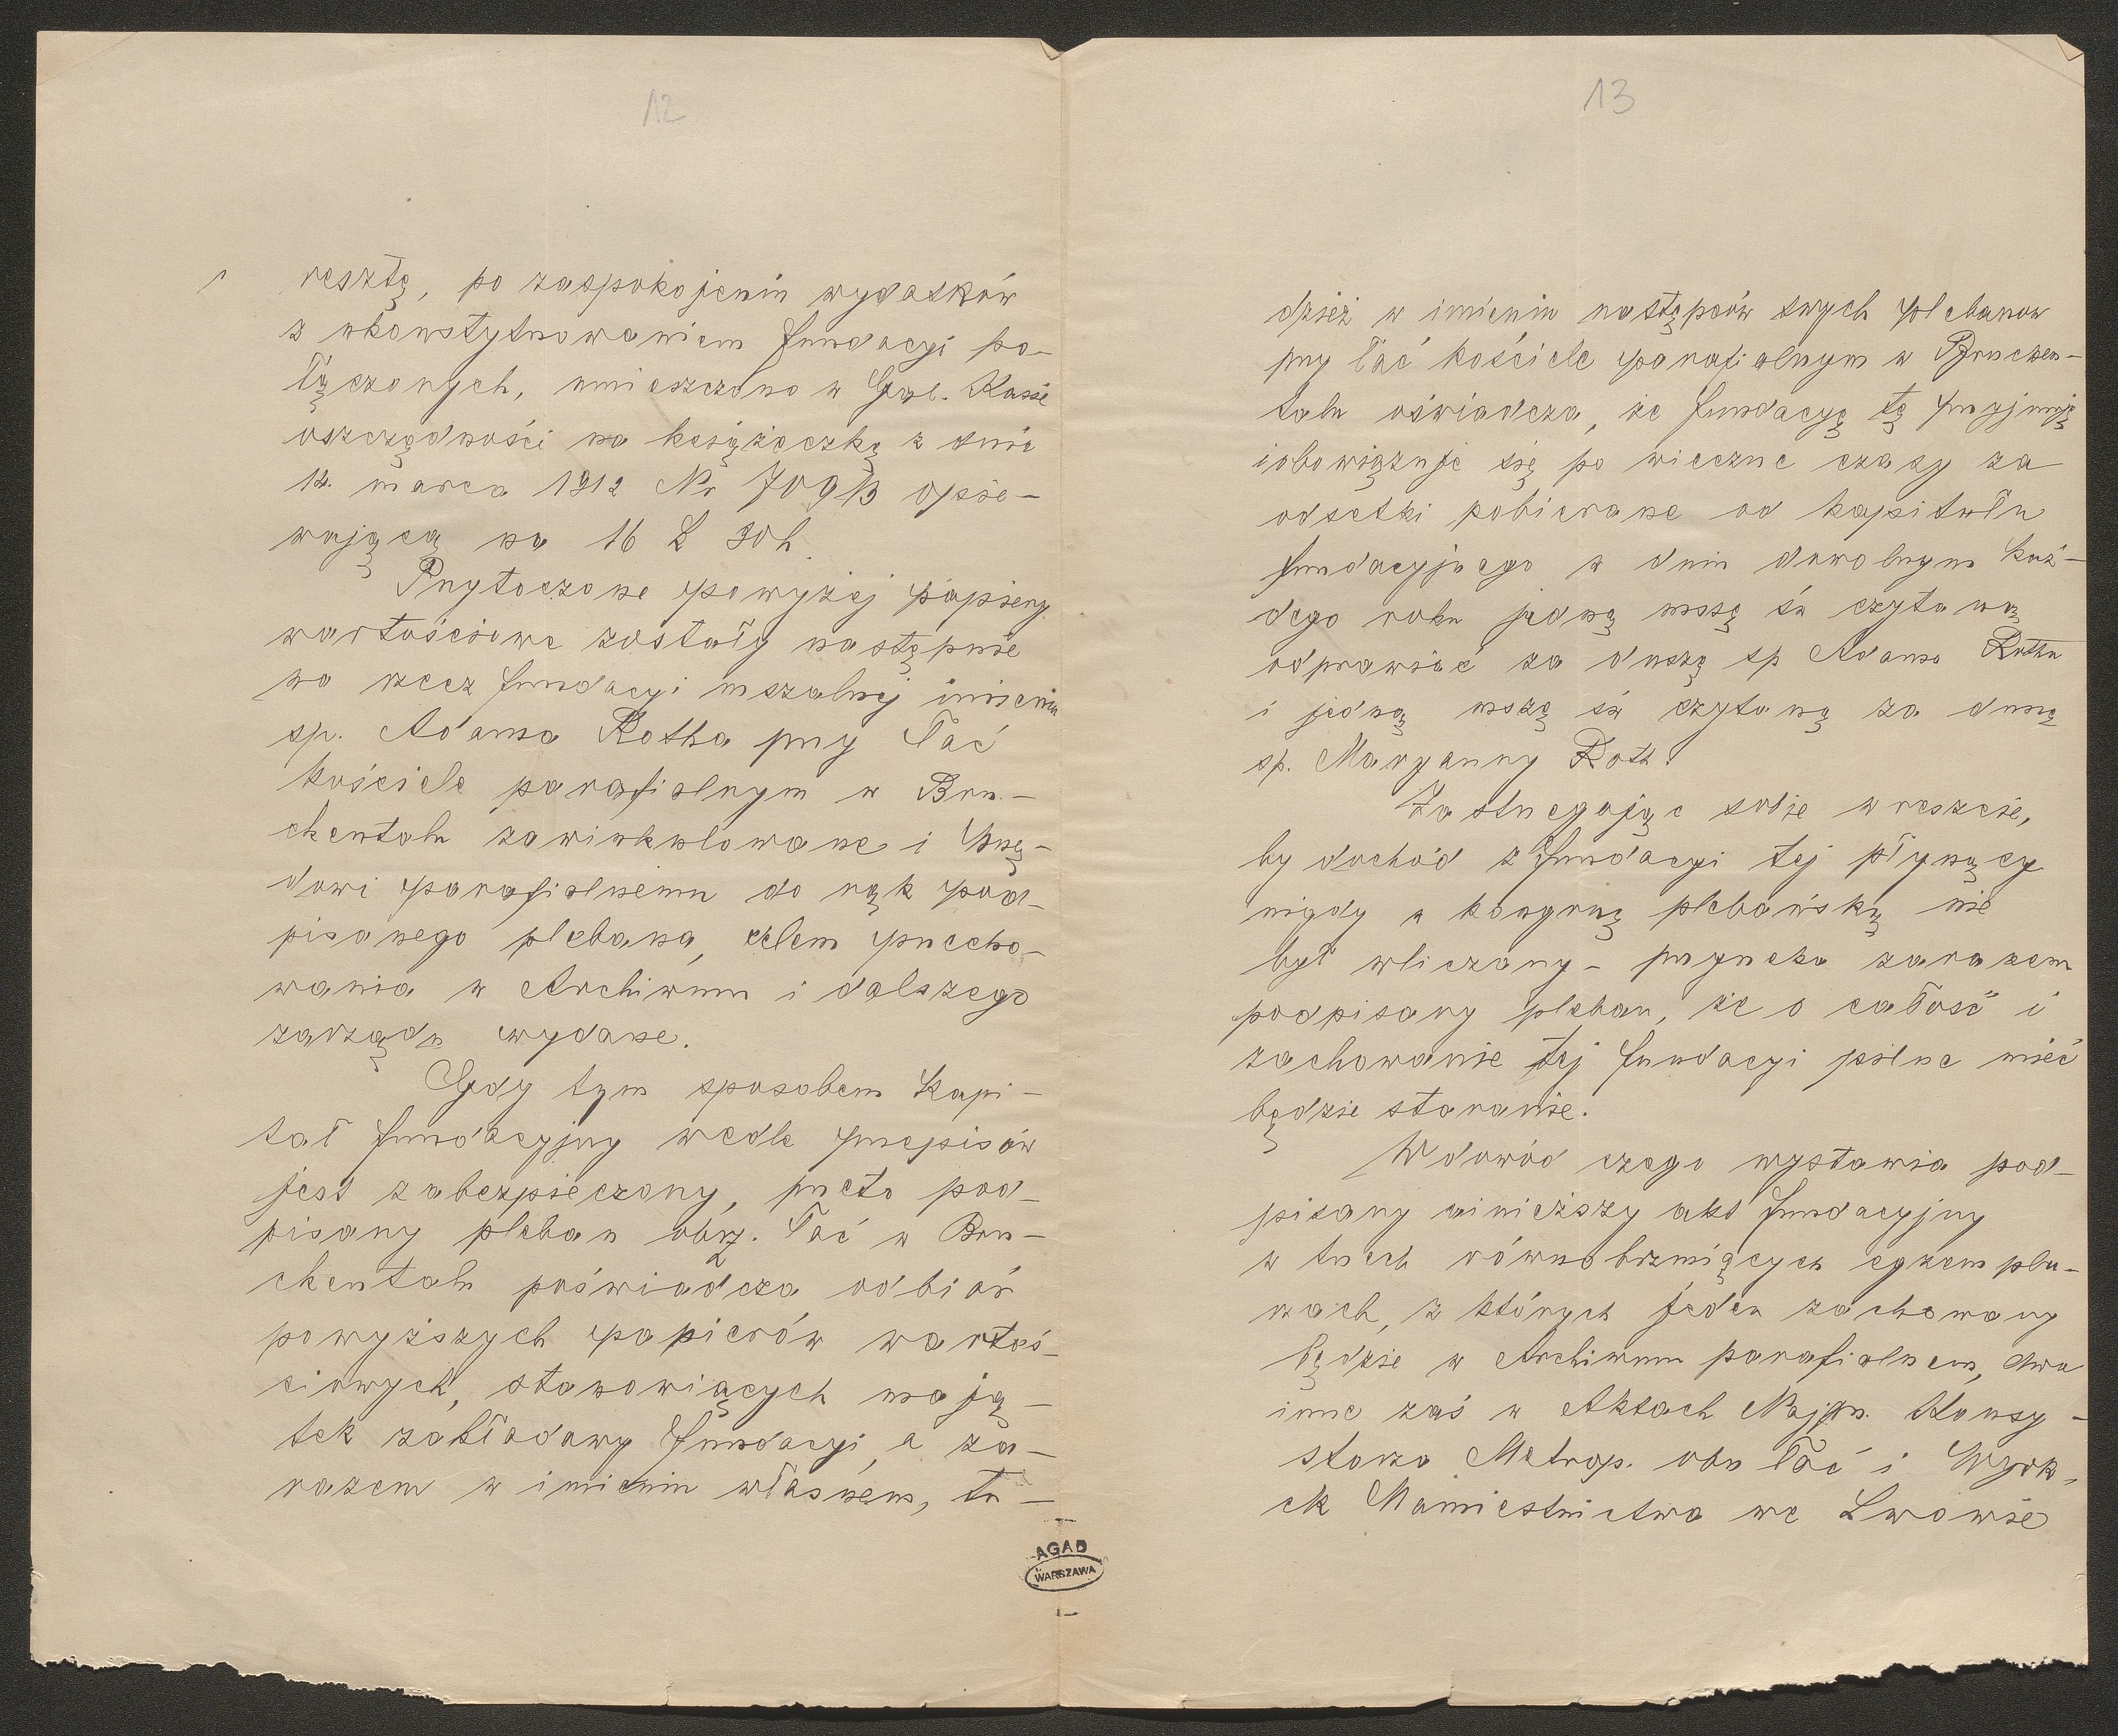 12
resztę, po zaspokojeniu wydatków
z ukonstytuowaniem fundacyi po-
łączonych, umieszczono w Gal. Kasie
oszczędności na książeczkę z dnia
12. marca 1912 Nr 70913 opie-
wającą na 16 K 30h.
Przytoczone powyżej papiery
wartościowe zostały następnie
na rzecz fundacyi mszalnej imienia
sp. Adama Rotha przy łać
kościele parafialnym w Bru-
ckentalu zawinkulowane i Urzę-
dowi parafialnemu do rąk pod-
pisanego plebana, celem przecho-
wania w Archiwum i dalszego
zarządu wydane.
Gdy tym sposobem kapi-
tał fundacyjny wedle przepisów
jest zabezpieczony, przeto pod-
pisany pleban obrz. łać w Bru-
ckentalu poświadcza odbiór
powyższych papierów wartoś-
ciowych, stanowiących mają-
tek zakładowy fundacyi, a za-
razem w imieniu własnem, tu-
AGAD
WARSZAWA
13
dzież w imieniu następców swych plebanow
przy łać kościele parafialnym w Brucken-
talu oświadcza, że fundacyę tę przyjmuję
i obowiązuje się po wieczne czasy za
odsetki pobierane od kapitału
fundacyjnego w dniu dowolnym każ-
dego roku jedną mszę św czytaną
odprawiać za duszę sp Adama Rotha
i jedną mszę św czytaną za duszę
sp. Maryanny Roth.
Zastrzegając sobie wreszcie,
by dochód z fundacyi tej płynący
nigdy w kongruę plebańską nie
był wliczany - przyrzeka zarazem
podpisany pleban, że o całość i
zachowanie tej fundacyi pilne mieć
będzie staranie.
W dowód czego wystawia pod-
pisany niniejszy akt fundacyjny
w trzech równobrzmiących egzempla-
rzach, z których jeden zachowany
będzie w Archiwum parafialnem, dwa
inne zaś w Aktach Najprz. Konsy-
storza Metrop. obrz łać i Wysok.
ck Namiestnictwa we Lwowie